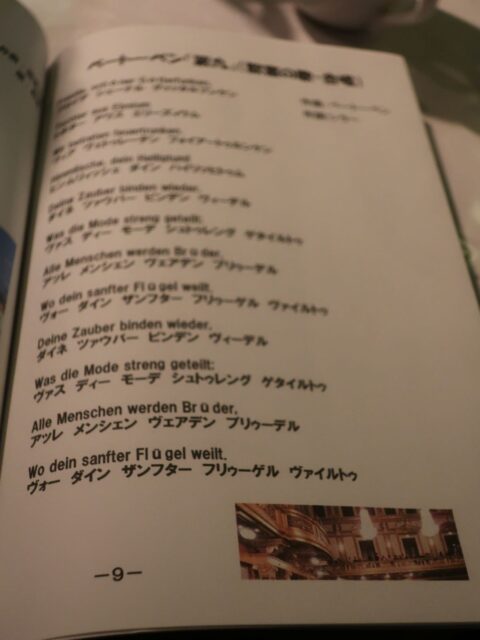 ベートーベン「第九」(歓喜の歌・合唱)
作曲 ベートーベン
Freude, schöner Götterfunken,
Tochter aus Elysium
Wir betreten feuertrunken.
Himmlische, dein Heiligtum!
Deine Zauber binden wieder,
ダイネ ツァウバー ビンデン ヴィーデル
Was die Mode streng geteilt.
ヴァス ディー モーデ シュトゥレング ゲタイルトゥ
Alle Menschen werden Brüder,
アッレ メンシェン ヴェアデン ブリゥーデル
Wo dein sanfter Flügel weilt.
ヴォー ダイン ザンフター フリゥーゲル ヴァイルトゥ
Deine Zauber binden wieder,
ダイネ ツァウバー ビンデン ヴィーデル
Was die Mode streng geteilt:
ヴァス ディー モーデ シュトゥレング ゲタイルトゥ
Alle Menschen werden Brüder,
アッレ メンシェン ヴェアデン ブリゥーデル
Wo dein sanfter Flügel weilt.
ヴォー ダイン ザンフター フリゥーゲル ヴァイルトゥ
—9—